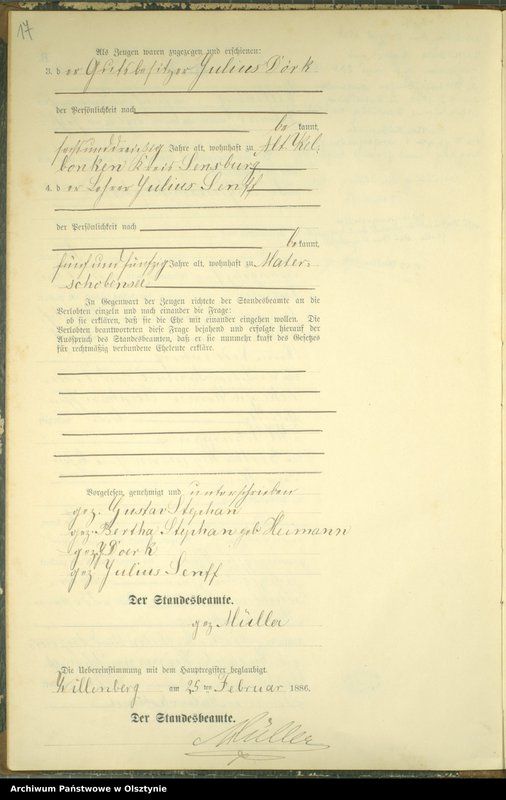 17
Als Zeugen waren zugezogen und erschienen:
3. der Gutsbesitzer Julius Dörk
der Persönlichkeit nach
be kannt,
sechsunddreißig Jahre alt, wohnhaft zu Alt Kel-
bonken Kreis Sensburg
4. der Lehrer Julius Senff
der Persönlichkeit nach
be kannt,
fünfundfünfzig Jahre alt, wohnhaft zu Mater-
schobensee
In Gegenwart der Zeugen richtete der Standesbeamte an die
Verlobten einzeln und nach einander die Frage:
ob sie erklären, daß sie die Ehe mit einander eingehen wollen. Die
Verlobten beantworteten diese Frage bejahend und erfolgte hierauf der
Ausspruch des Standesbeamten, daß er sie nunmehr kraft des Gesetzes
für rechtmäßig verbundene Eheleute erkläre.
Vorgelesen, genehmigt und unterschrieben
gez. Gustav Stephan
gez. Bertha Stephan geb Heimann
gez. Doerk
gez Julius Senff
Der Standesbeamte.
gez Müller
Die Uebereinstimmung mit dem Hauptregister beglaubigt.
Willenberg am 25 ten Februar 1886.
Der Standesbeamte.
Müller
Archiwum Państwowe w Olsztynie